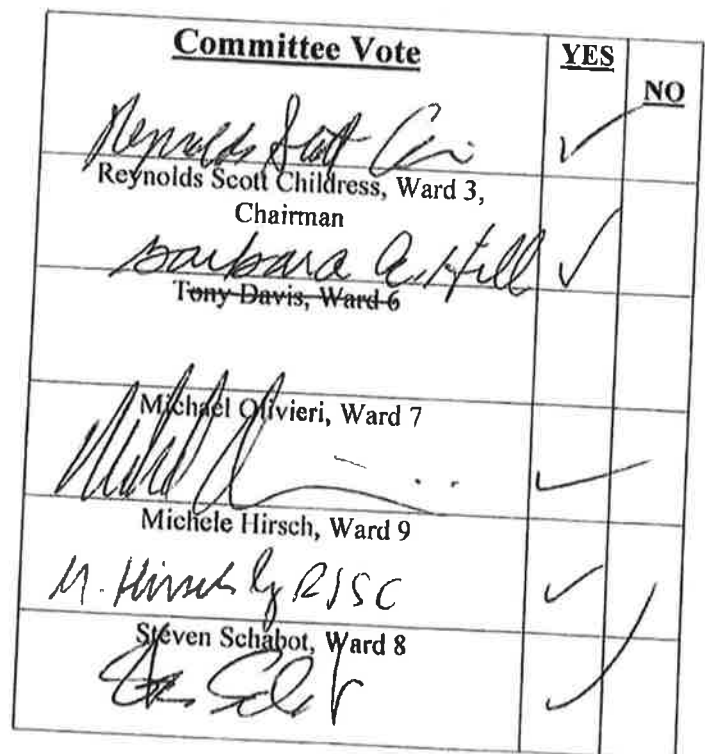 Committee Vote YES NO
Reynolds Scott
Reynolds Scott Childress, Ward 3,
Chairman
Barbara A. Hill
Tony Davis, Ward 6
Michael Olivieri, Ward 7
Michele Hirsch, Ward 9
M. Hirsch by RJSC
Steven Schabot, Ward 8